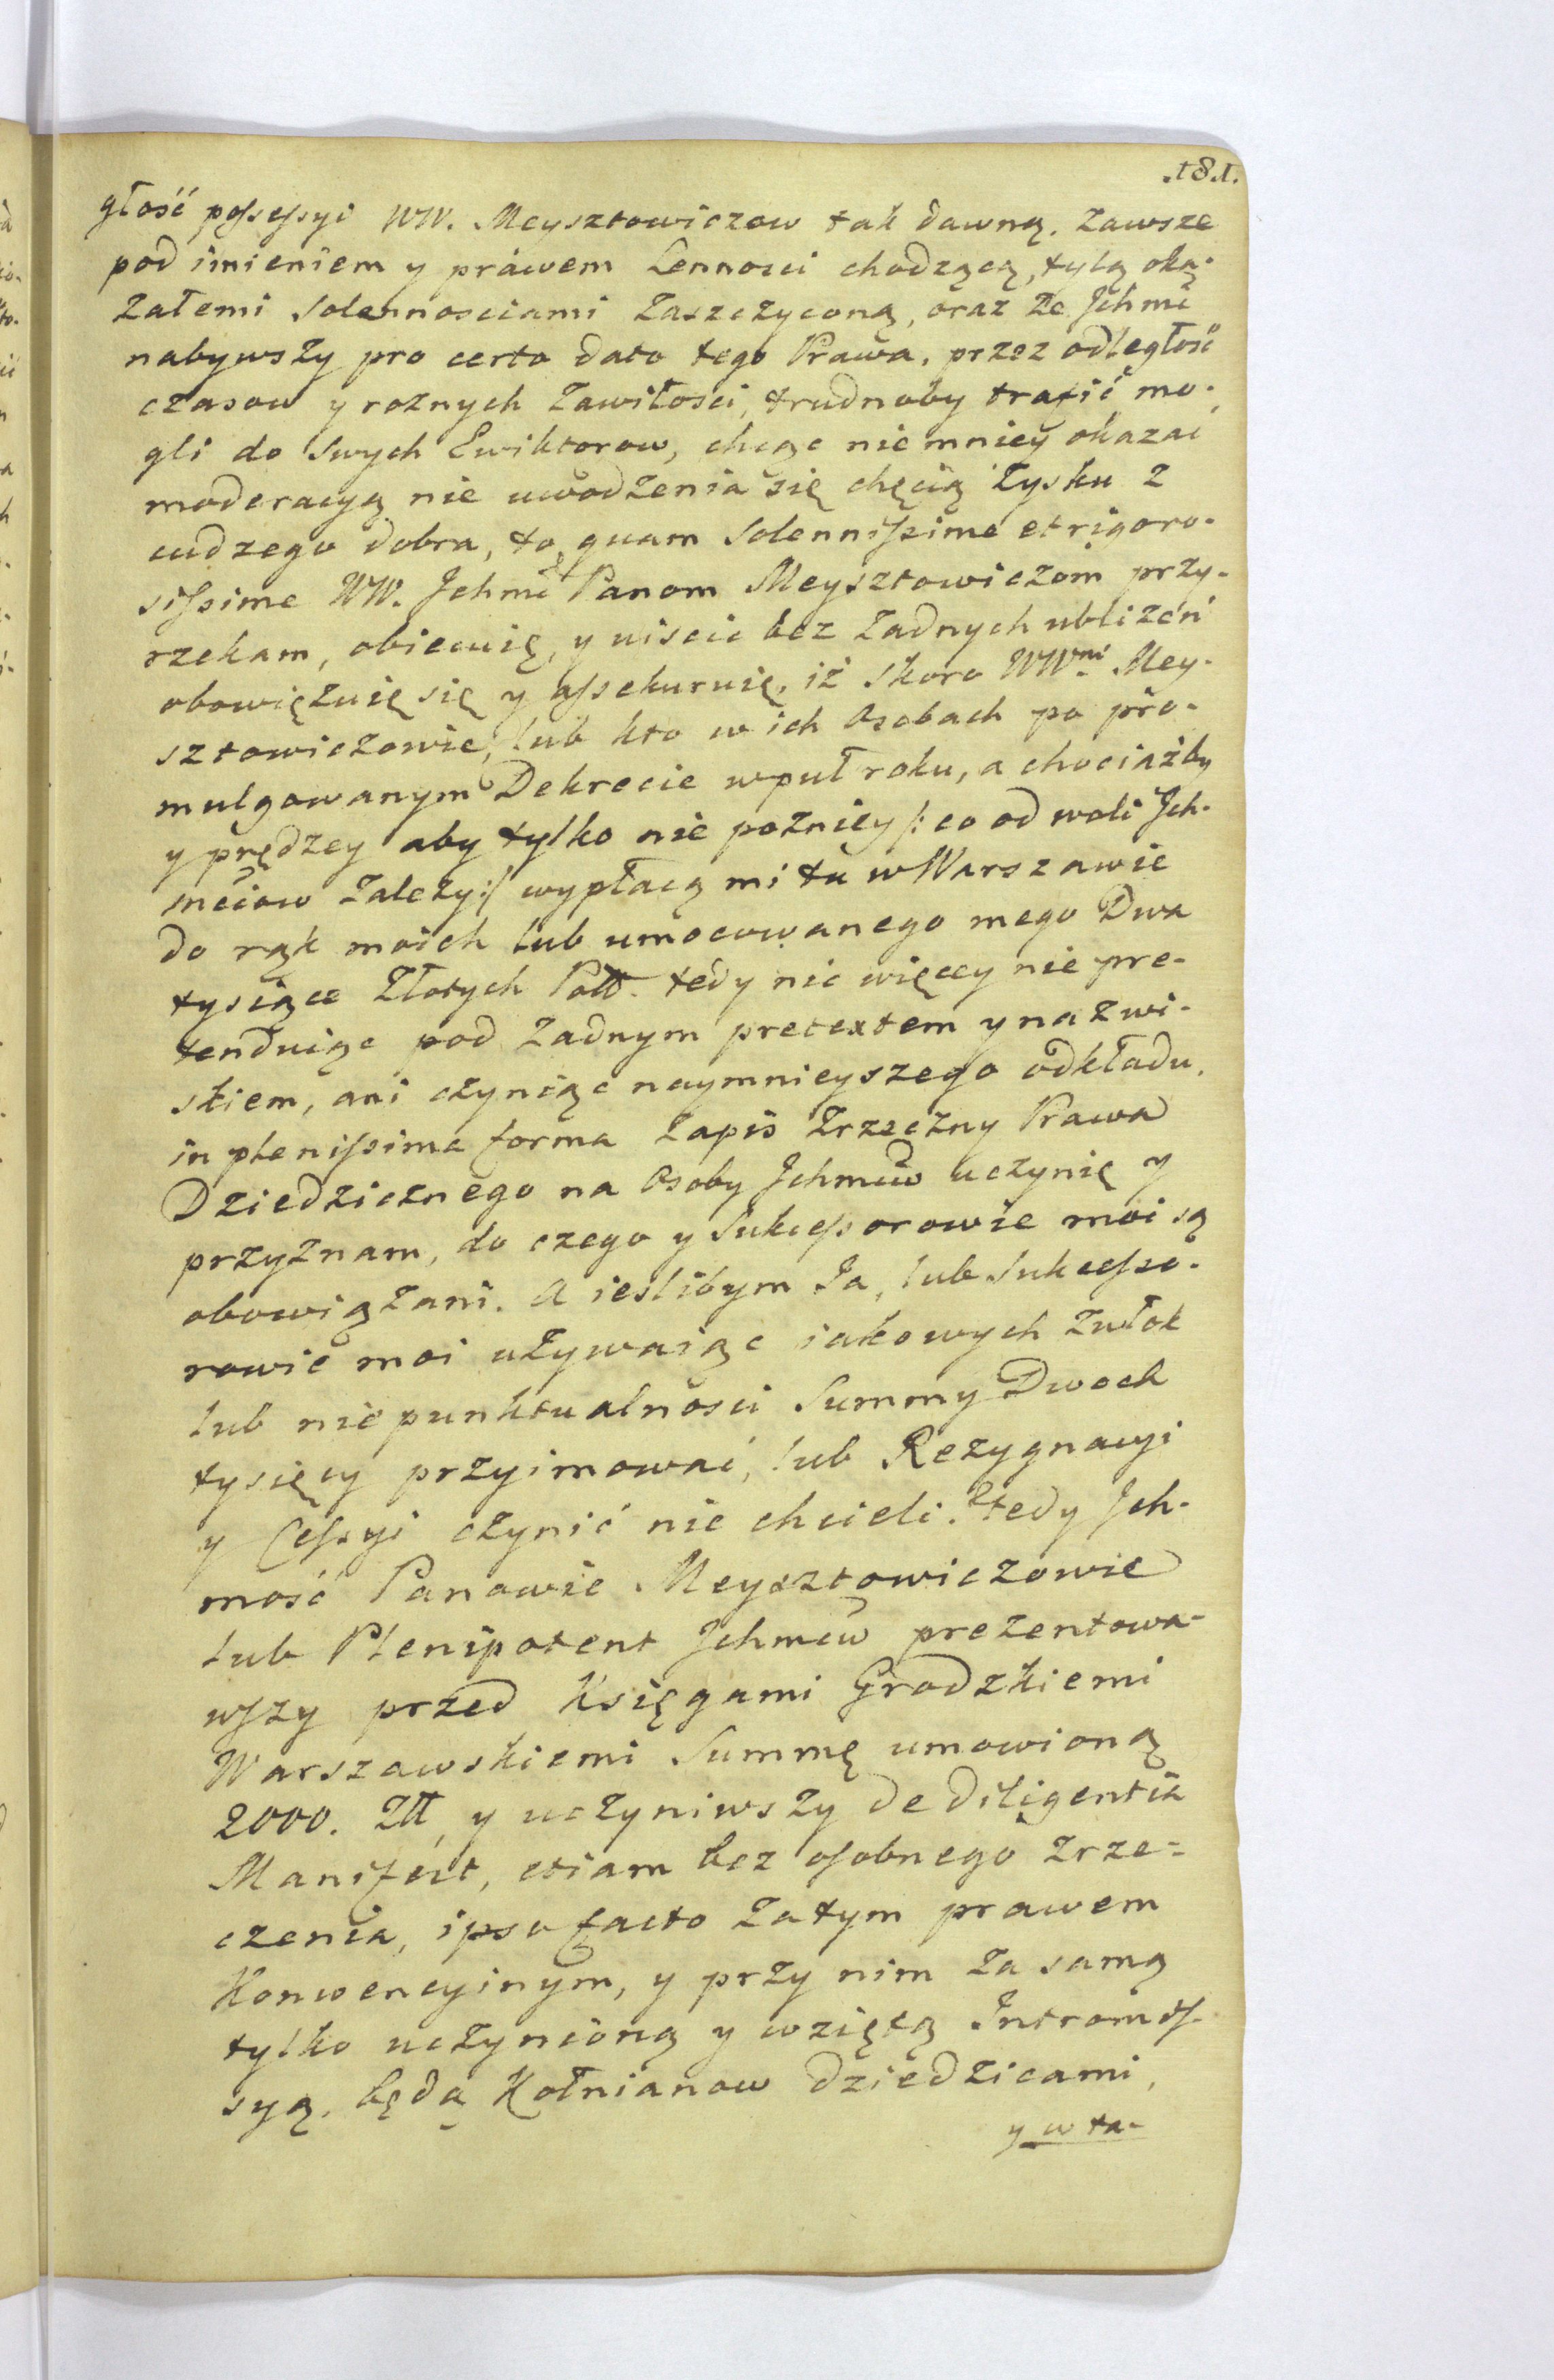 .181.
głość possessyi WW. Meysztowiczow tak dawną. zawsze
pod imieniem y prawem Lennosci chodzącą, tylą oka-
załemi solennosciami zaszczyconą, oraz że Jchmć
nabywszy pro certo dato tego Prawa, przez odległość
czasow y roznych zawiłosci, trudnoby trafić mo-
gli do swych Ewiktorow, chcąc niemniey okazać
moderacyą nie uwodzenia się chęcią zysku z
cudzego dobra, to quam solennissime et rigoro-
sissime WW. Jchmć Panom Meysztowiczom przy-
rzekam, obiecuię, y uiscie bez żadnych ubliżeń
obowięzuię się y assekuruię, iż skoro WWni Mey-
sztowiczowie, lub kto w ich Osobach po pro-
mulgowanym Dekrecie wpuł roku, a chociażby
y prędzey aby tylko nie pozniey /: co od woli Jch-
mciow zależy :/ wypłacą mi tu w Warszawie
do rąk moich lub umocowanego mego Dwa
tysiące Złotych Poll. tedy nic więcey nie pre-
tenduiąc pod żadnym pretextem y nazwi-
skiem, ani czyniąc naymnieyszego odkładu,
in plenissima forma Zapis Zrzeczny Prawa
Dziedzicznego na Osoby Jchmciw uczynię y
przyznam, do czego y Sukcessorowie moi są
obowiązani. A iesliбym Ja, lub Sukcesso-
rowie moi używaiąc iakowych zwłok
lub niepunktualnosci Summy Dwoch
tysięcy przyimować, lub Rezygnacyi
y Cessyi czynić nie chcieli. tedy Jch-
mość Panowie Meysztowiczowie
lub Plenipotent Jchmciw prezentowa-
wszy przed Księgami Grodzkiemi
Warszawskiemi Summę umowioną
2000. Zll, y uczyniwszy de diligentia
Manifest, etiam bez osobnego zrze-
czenia, ipso facto za tym prawem
Konwencyinym, y przy nim za samą
tylko uczynioną y wziętą Intromis-
syą, będą Kołnianow dziedzicami,
y w ta-